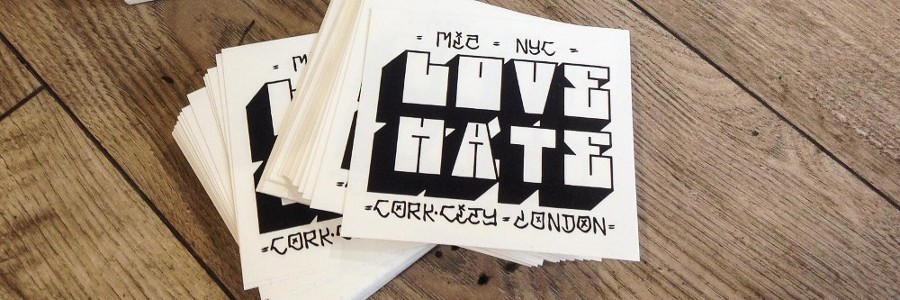 = MIA = NYC =
LOVE
HATE
=CORK·CITY=LONDON=
=CORK·C